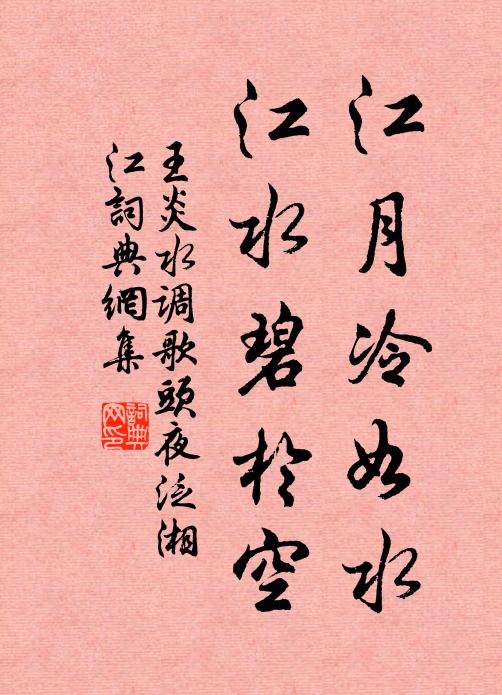 江月冷如水
江水碧於空
王炎水调歌頭夜泛湘
江詞典網集
詞典
网印